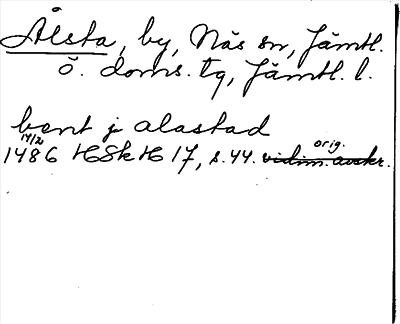 Ålsta, by, Näs sn, Jämtl.
ö. doms. tg, Jämtl. l.
bent j alastad
14/2 orig.
1486 HSkH 17, s. 44. vidim. avskr.